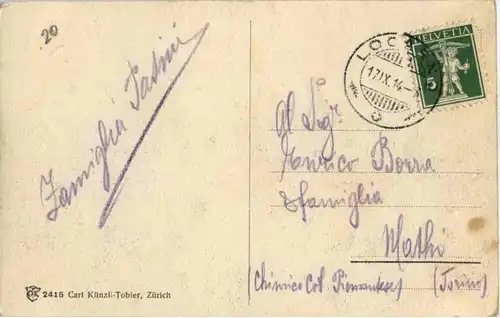 20
Famiglia Patini
HELVETIA
5
LOC
17.IX.14
Al Sigr
Enrico Borra
& famiglia
Mathi
(Chimico Cot. Piemontese) (Torino)
2415 Carl Künzli-Tobler, Zürich